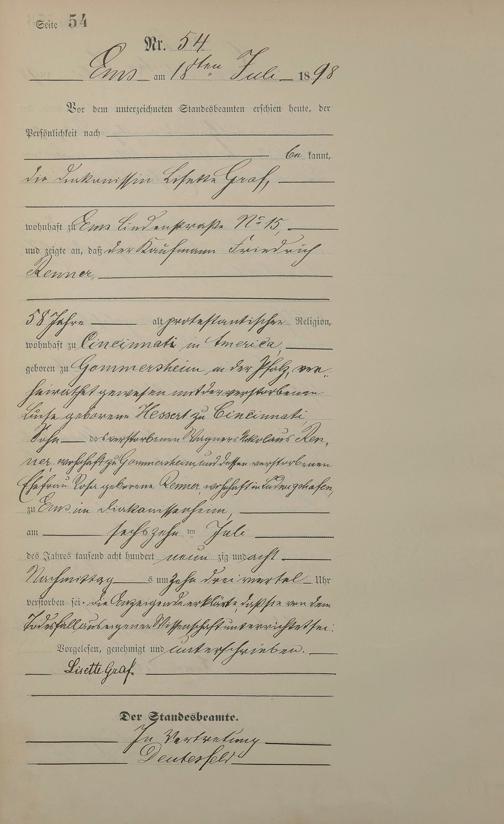 Seite 54
Nr. 54
Ems am 18ten Juli 1898
Vor dem unterzeichneten Standesbeamten erschien heute, der
Persönlichkeit nach
be kannt,
die Diakonissin Lisette Graf,
wohnhaft zu Ems Lindenstraße No 15,
und zeigte an, daß der Kaufmann Friedrich
Renner,
58 Jahre alt, protestantischer Religion,
wohnhaft zu Cincinnati in America,
geboren zu Gommersheim, in der Pfalz, ver-
heirathet gewesen mit der verstorbenen
geborene Hessert zu Cincinnati
Sohn des verstorbenen Wagners Nikolaus Ren-
ner, wohnhaft zu Gommersheim, und dessen verstorbenen
Ehefrau geborene Renner, wohnhaft in
zu Ems im Diakonissenheim,
am sechszehn ten Juli
des Jahres tausend acht hundert neun zig und acht
Nachmittag s um zehn drei viertel Uhr
verstorben sei. Die Anzeigende erklärte daß sie von dem
Todesfall aus eigener Wissenschaft unterrichtet sei.
Vorgelesen, genehmigt und unterschrieben.
Lisette Graf.
Der Standesbeamte.
In Vertretung